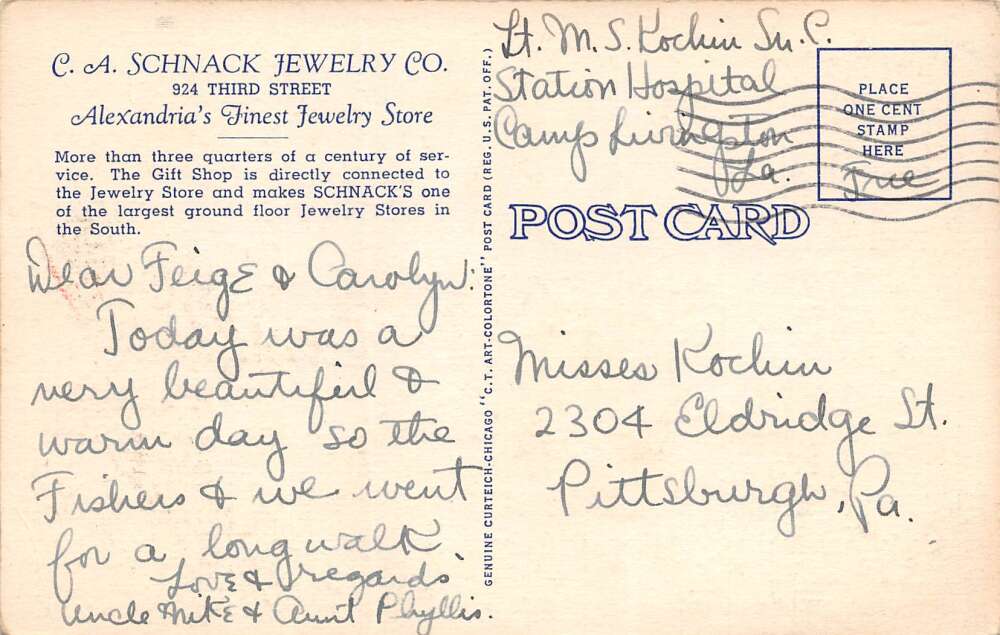 C. A. SCHNACK JEWELRY CO.
924 THIRD STREET
Alexandria's Finest Jewelry Store
More than three quarters of a century of ser-
vice. The Gift Shop is directly connected to
the Jewelry Store and makes SCHNACK'S one
of the largest ground floor Jewelry Stores in
the South.
Dear Feige & Carolyn:
Today was a
very beautiful &
warm day so the
Fishers & we went
for a long walk.
Love & regards
Uncle Mike & Aunt Phyllis.
GENUINE CURTEICH-CHICAGO "C.T. ART-COLORTONE" POST CARD (REG. U.S. PAT. OFF.)
Lt. M. S. Kochin Sn. C.
Station Hospital
Camp Livingston
La.
PLACE
ONE CENT
STAMP
HERE
Free
POST CARD
Misses Kochin
2304 Eldridge St.
Pittsburgh, Pa.